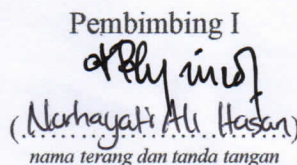 Pembimbing I
(Nurhayati Ali Hasan)
nama terang dan tanda tangan